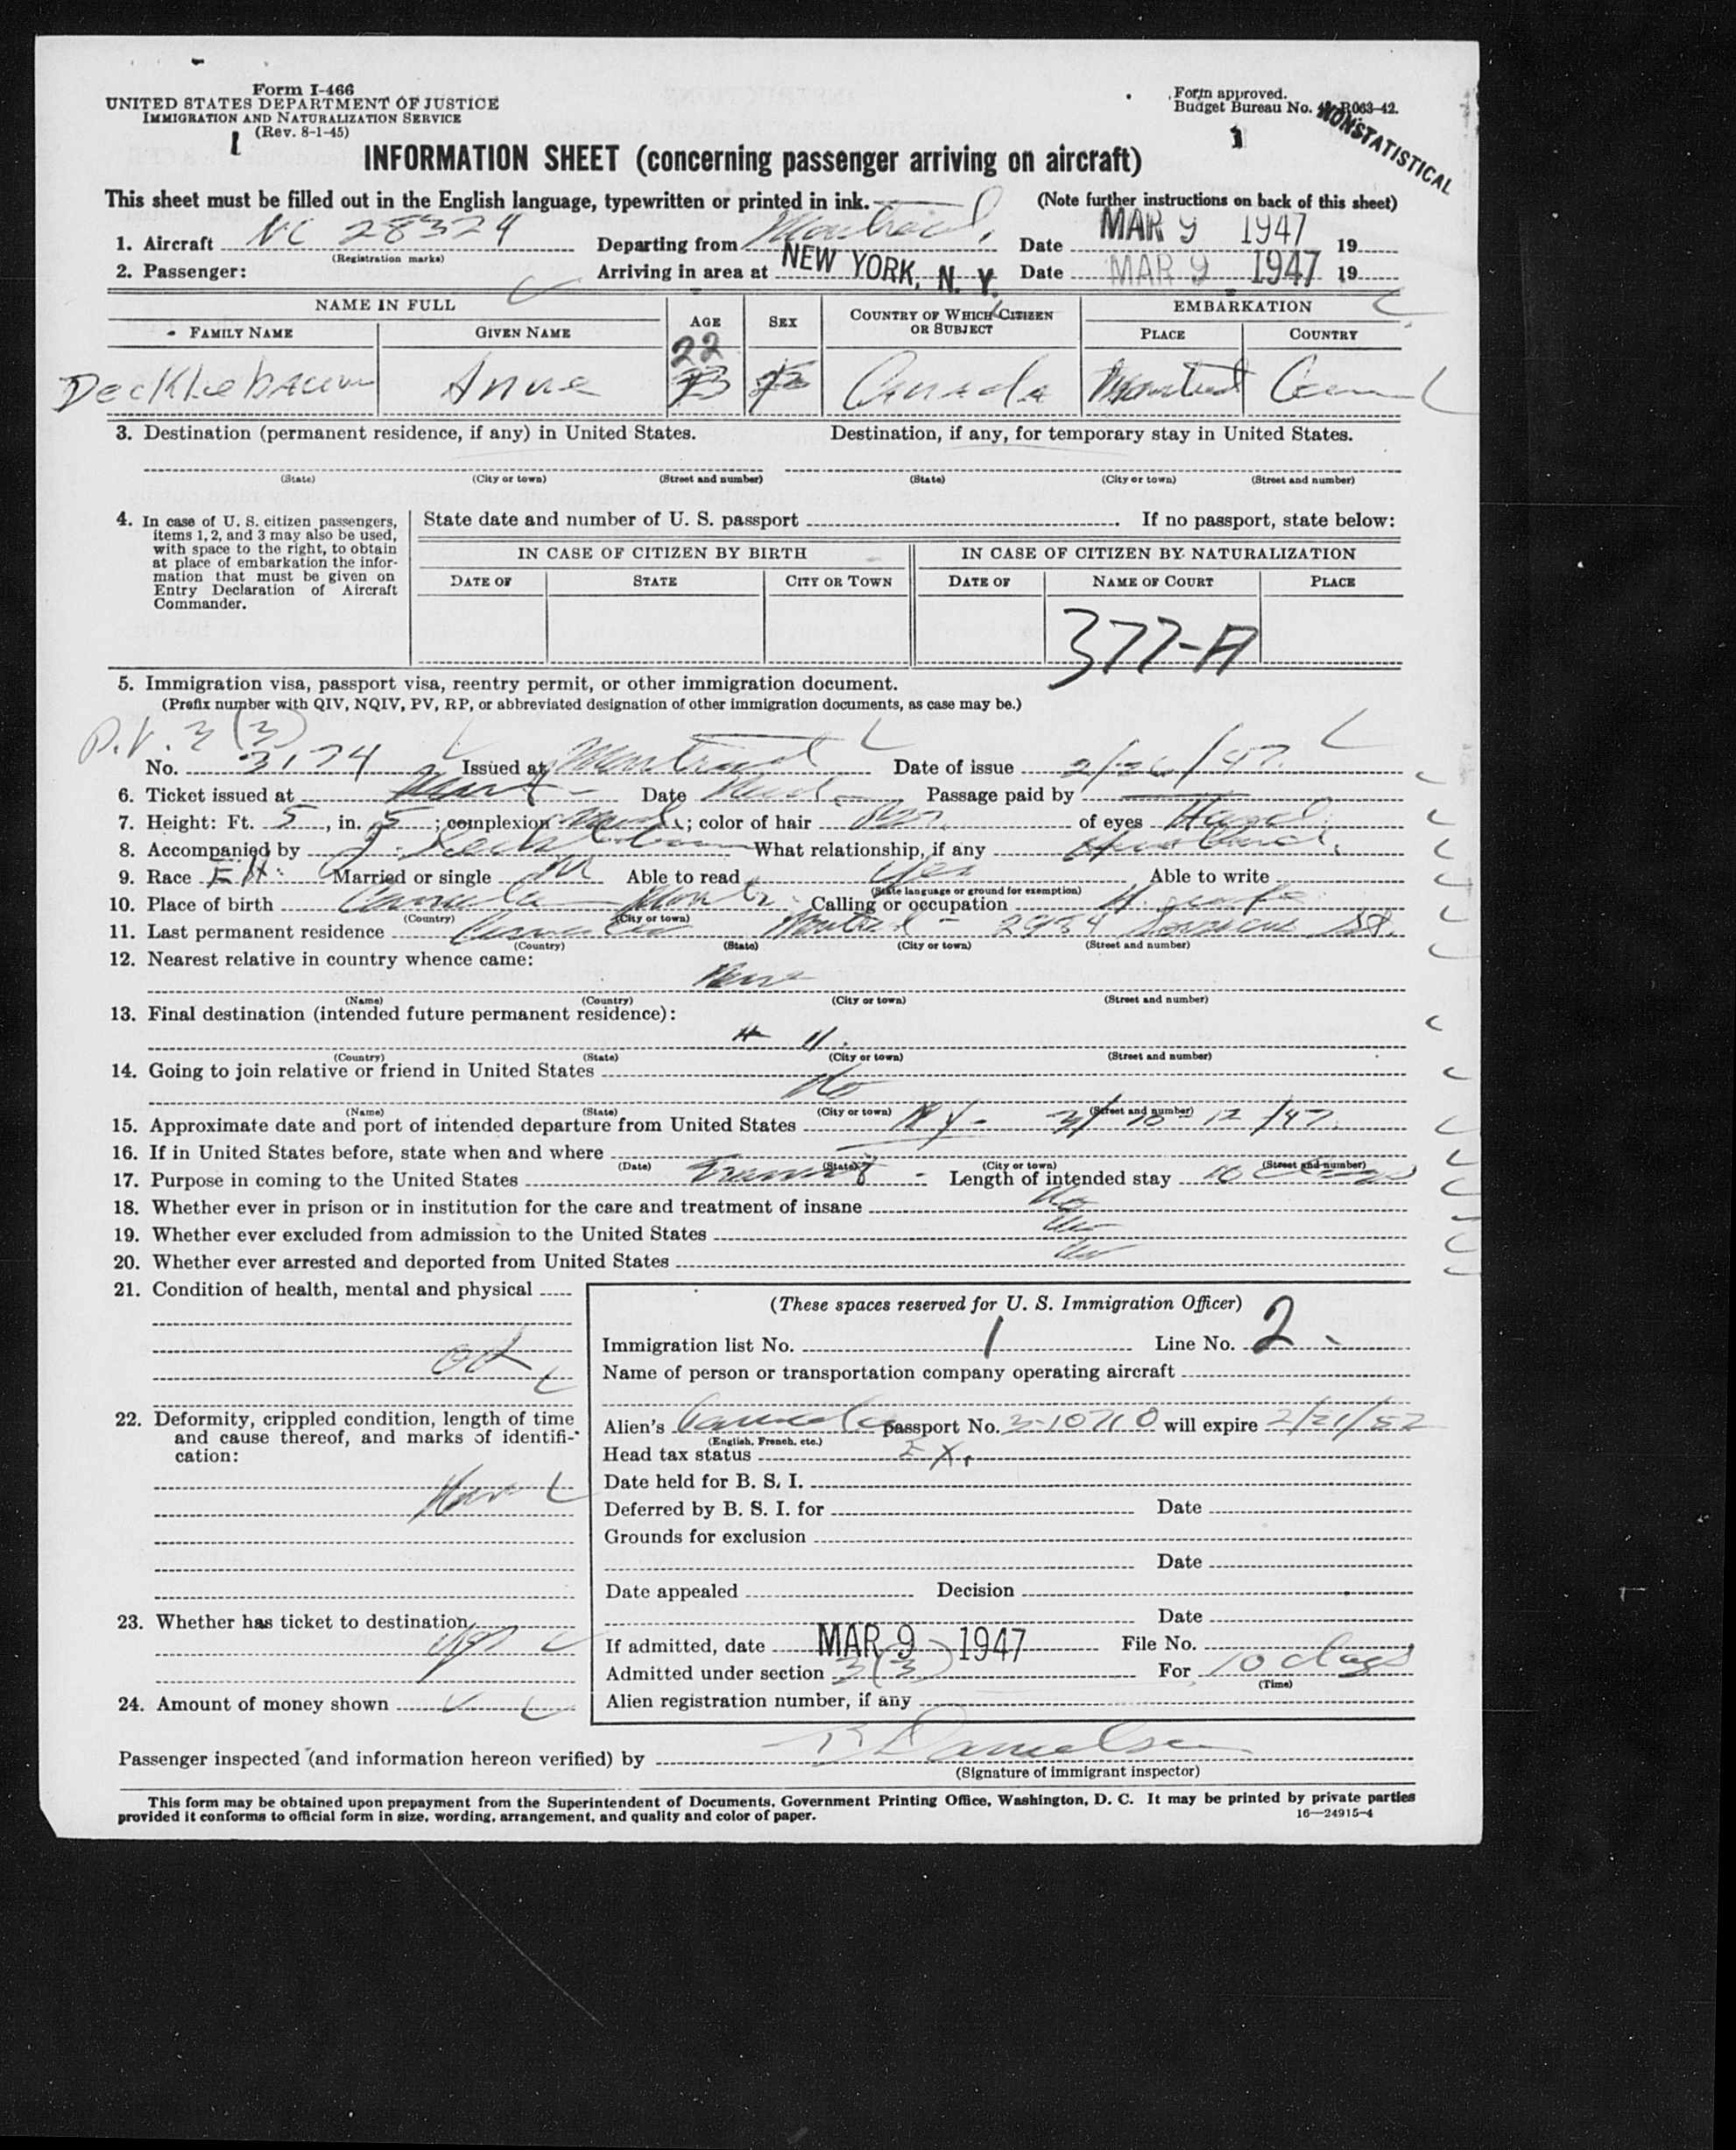 Form I-466
UNITED STATES DEPARTMENT OF JUSTICE
IMMIGRATION AND NATURALIZATION SERVICE
(Rev. 8-1-45)
Form approved.
Budget Bureau No. 43-R063-42.
NONSTATISTICAL
1
1
INFORMATION SHEET (concerning passenger arriving on aircraft)
This sheet must be filled out in the English language, typewritten or printed in ink. (Note further instructions on back of this sheet)
1. Aircraft NC 28324 Departing from Montreal, Date MAR 9 1947 19
(Registration marks)
2. Passenger: Arriving in area at NEW YORK, N. Y. Date MAR 9 1947 19
NAME IN FULL AGE SEX COUNTRY OF WHICH CITIZEN OR SUBJECT EMBARKATION
FAMILY NAME GIVEN NAME PLACE COUNTRY
22
Decklebaum Anne F Canada Montreal Can
3. Destination (permanent residence, if any) in United States. Destination, if any, for temporary stay in United States.
(State) (City or town) (Street and number) (State) (City or town) (Street and number)
4. In case of U. S. citizen passengers, items 1, 2, and 3 may also be used, with space to the right, to obtain at place of embarkation the information that must be given on Entry Declaration of Aircraft Commander.
State date and number of U. S. passport . If no passport, state below:
IN CASE OF CITIZEN BY BIRTH IN CASE OF CITIZEN BY NATURALIZATION
DATE OF STATE CITY OR TOWN DATE OF NAME OF COURT PLACE
377-A
5. Immigration visa, passport visa, reentry permit, or other immigration document.
(Prefix number with QIV, NQIV, PV, RP, or abbreviated designation of other immigration documents, as case may be.)
P.V. 3 (3)
No. 3174 Issued at Montreal Date of issue 2/26/47.
6. Ticket issued at Date Passage paid by
7. Height: Ft. 5, in. 5; complexion Med.; color of hair of eyes Hazel
8. Accompanied by J. Decklebaum What relationship, if any Husband.
9. Race Married or single M Able to read Yes Able to write
(State language or ground for exemption)
10. Place of birth Canada Calling or occupation
(Country) (City or town)
11. Last permanent residence Canada Montreal - St.
(Country) (State) (City or town) (Street and number)
12. Nearest relative in country whence came:
(Name) (Country) (City or town) (Street and number)
13. Final destination (intended future permanent residence):
# 11.
(Country) (State) (City or town) (Street and number)
14. Going to join relative or friend in United States
No
(Name) (State) (City or town) (Street and number)
15. Approximate date and port of intended departure from United States NY - 3/ 10 - 12 /47.
16. If in United States before, state when and where
(Date) (State) (City or town) (Street and number)
17. Purpose in coming to the United States Transit - Length of intended stay 10 days
18. Whether ever in prison or in institution for the care and treatment of insane No
19. Whether ever excluded from admission to the United States No
20. Whether ever arrested and deported from United States No
21. Condition of health, mental and physical
22. Deformity, crippled condition, length of time and cause thereof, and marks of identification:
None
23. Whether has ticket to destination
yes
24. Amount of money shown
(These spaces reserved for U. S. Immigration Officer)
Immigration list No. 1 Line No. 2
Name of person or transportation company operating aircraft
Alien's Canada passport No. 3-10710 will expire 2/21/52
(English, French, etc.)
Head tax status EX.
Date held for B. S. I.
Deferred by B. S. I. for Date
Grounds for exclusion
Date
Date appealed Decision
Date
If admitted, date MAR 9 1947 File No.
Admitted under section 3(3) For 10 days
(Time)
Alien registration number, if any
Passenger inspected (and information hereon verified) by Danielson
(Signature of immigrant inspector)
This form may be obtained upon prepayment from the Superintendent of Documents, Government Printing Office, Washington, D. C. It may be printed by private parties
provided it conforms to official form in size, wording, arrangement, and quality and color of paper. 16—24915-4